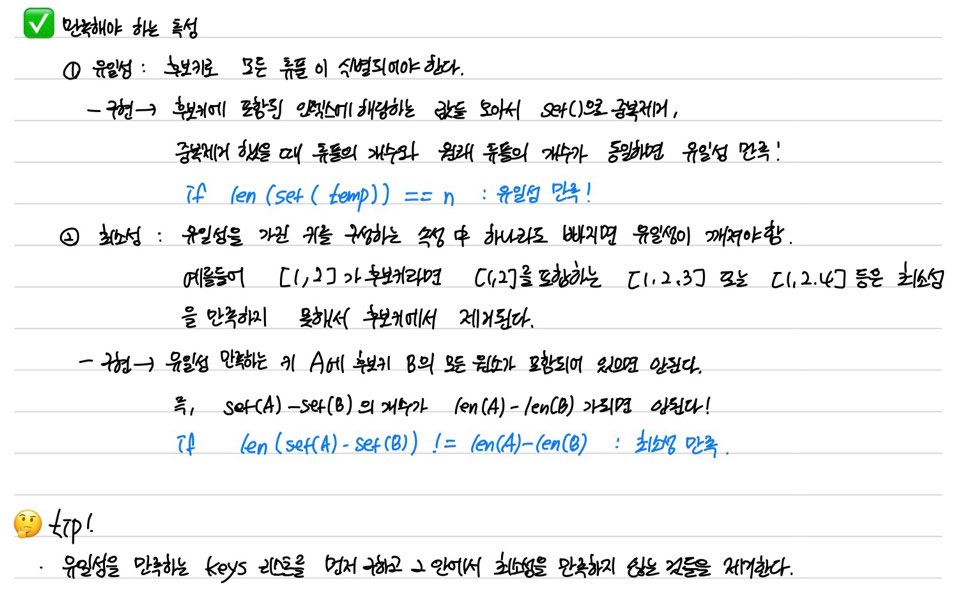 ✅ 만족해야 하는 특성
① 유일성 : 후보키로 모든 튜플이 식별되어야한다.
- 구현 → 후보키에 포함된 인덱스에 해당하는 값들 모아서 set()으로 중복제거,
중복제거 했을 때 튜플의 개수와 원래 튜플의 개수가 동일하면 유일성 만족!
if len(set(temp)) == n : 유일성 만족!
② 최소성 : 유일성을 가진 키를 구성하는 속성 中 하나라도 빠지면 유일성이 깨져야함.
예를들어 [1,2]가 후보키라면 [1,2]를 포함하는 [1.2.3] 또는 [1,2.4] 등은 최소성
을 만족하지 못해서 후보키에서 제거된다.
- 구현 → 유일성 만족하는 키 A에 후보키 B의 모든 원소가 포함되어 있으면 안된다.
즉, set(A)-set(B)의 개수가 len(A)-len(B) 가되면 안된다!
if len(set(A)-set(B)) != len(A)-len(B) : 최소성 만족.
🤔 tip!
· 유일성을 만족하는 keys 리스트를 먼저 구하고 그 안에서 최소성을 만족하지 않는 것들을 제거한다.